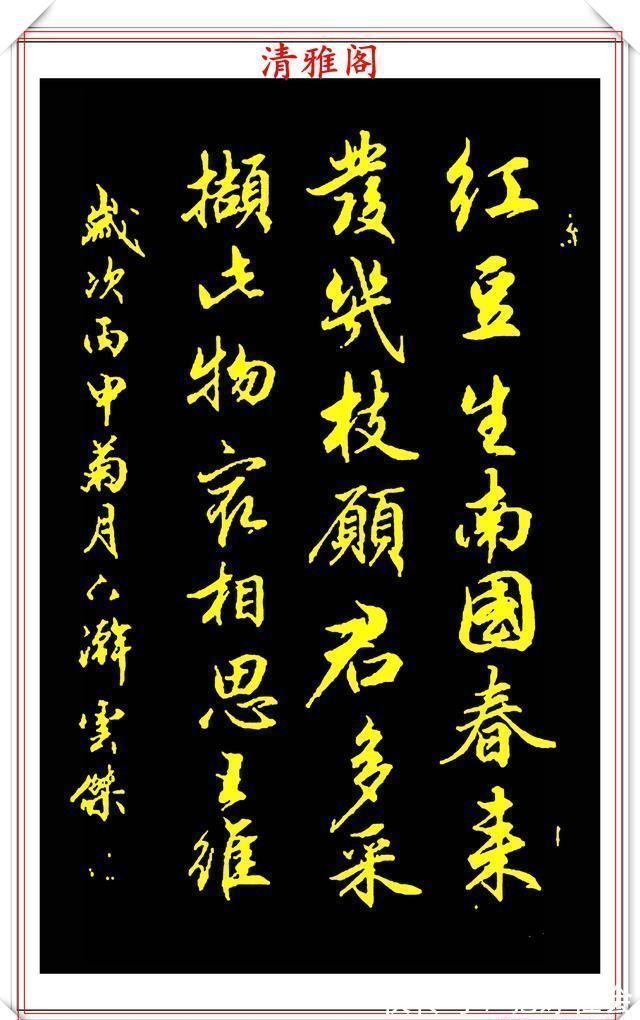 清雅阁
红豆生南國春来
發幾枝願君多采
擷此物最相思王維
歲次丙申菊月瀚雲傑